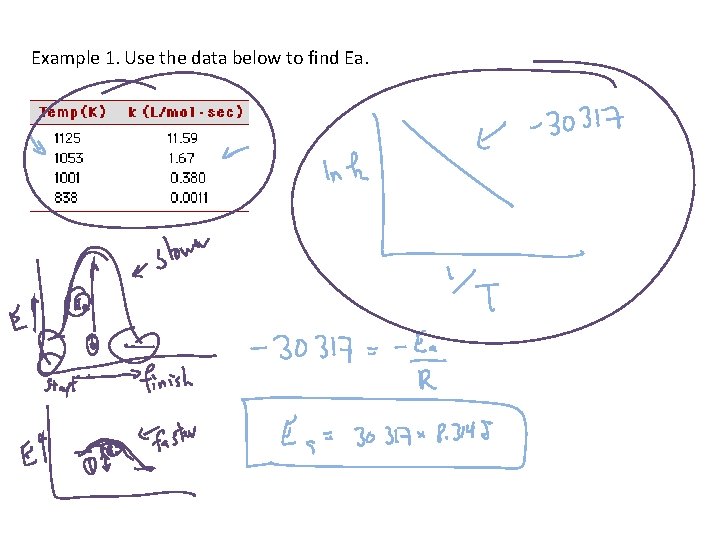 Example 1. Use the data below to find Ea.
Temp(K) k (L/mol-sec)
1125 11.59
1053 1.67
1001 0.380
838 0.0011
-30317
ln k
1/T
slower
E
Ea
start
finish
-30317 = -Ea/R
Ea = 30317 × 8.314 J
E
faster